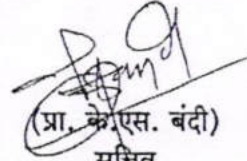 (प्रा. के.एस. बंदी)
सचिव